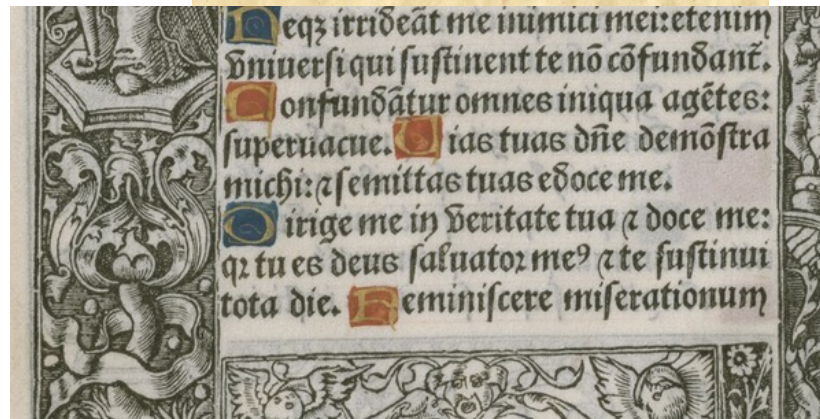 Neqꝫ irrideāt me inimici mei: etenim
vniuersi qui sustinent te nō cōfundant̃.
Confundātur omnes iniqua agētes:
superuacue. Uias tuas dn̄e demōstra
michi: ⁊ semittas tuas edoce me.
Dirige me in veritate tua ⁊ doce me:
qꝛ tu es deus saluator meꝰ ⁊ te sustinui
tota die. Reminiscere miserationum